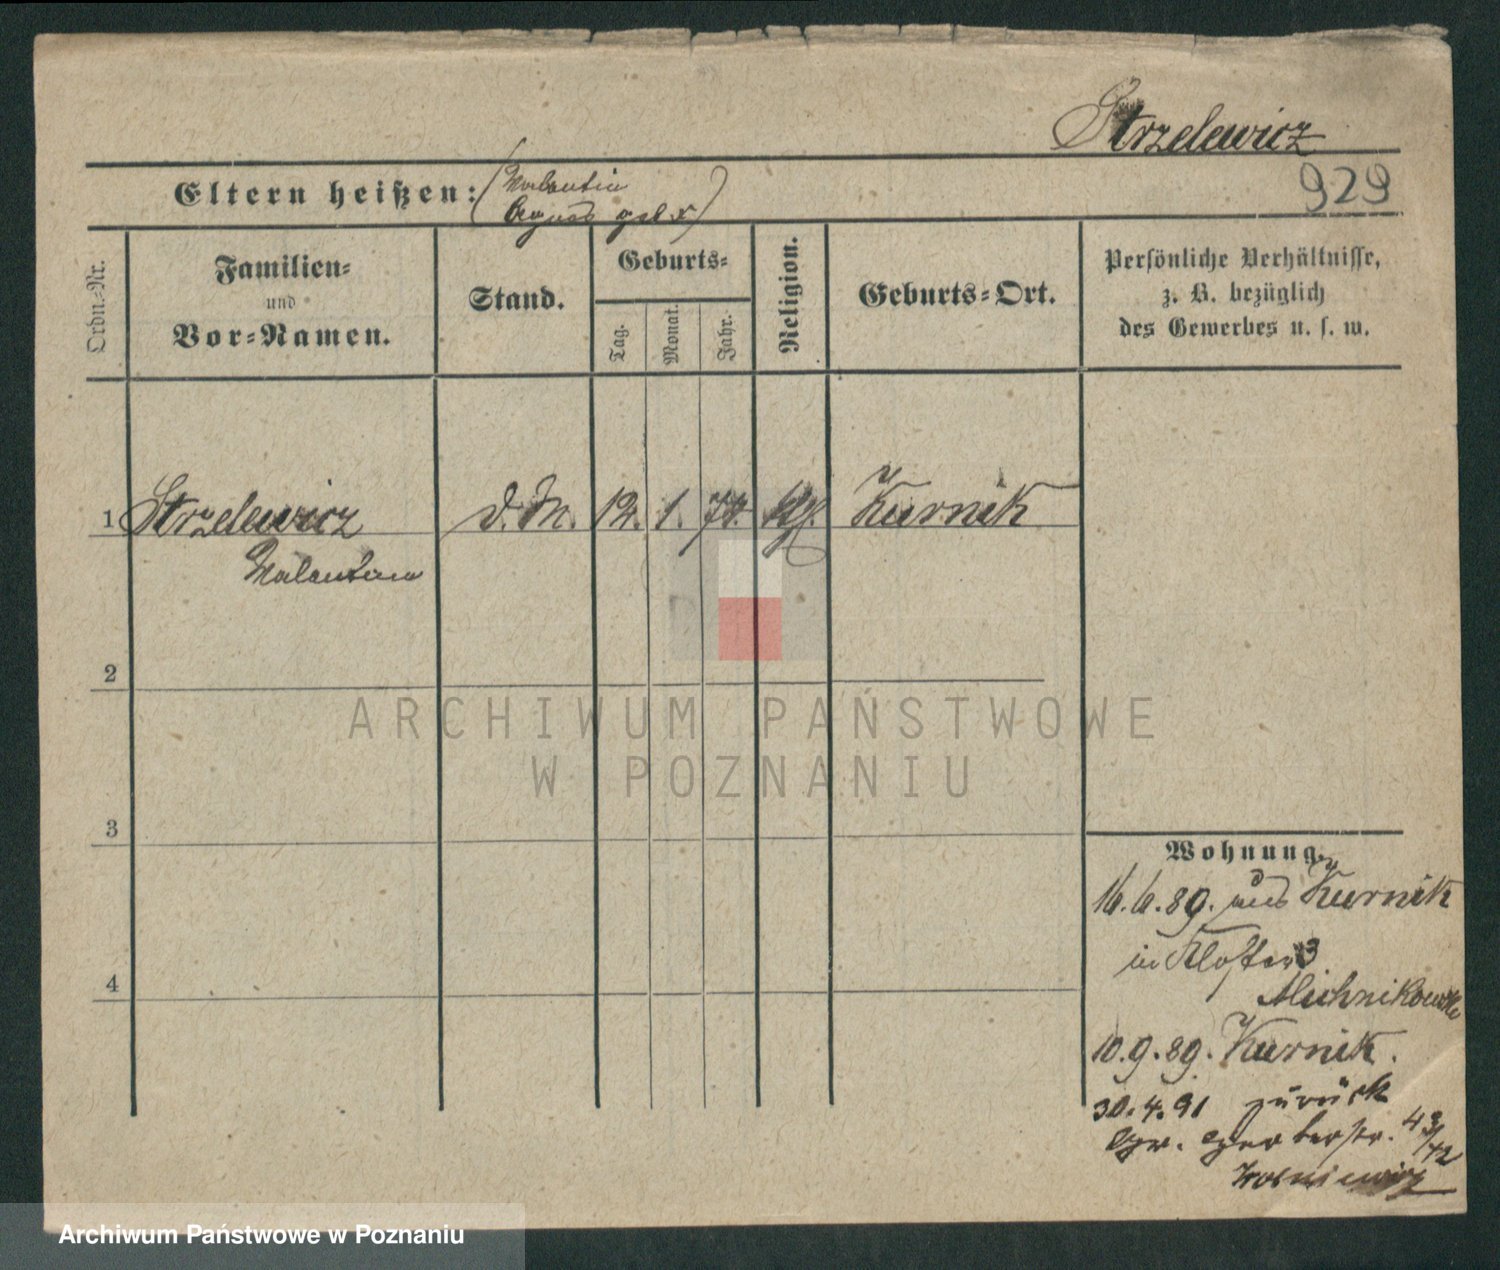 Strzelewicz
929
Eltern heißen: (Valentin
Agnes geb. x)
Ordn.-Nr.
Familien-
und
Vor-Namen.
Stand.
Geburts-
Tag.
Monat.
Jahr.
Religion.
Geburts-Ort.
Persönliche Verhältnisse,
z. B. bezüglich
des Gewerbes u. s. w.
1 Strzelewicz d. M. 12. 1. 74. Kurnik
2
3
4
Wohnung.
16. 6. 89. aus Kurnik
in Kloster 3
10. 9. 89. Kurnik.
30. 4. 91 zurück
Gr. Gerberstr. 43/42
ARCHIWUM PAŃSTWOWE
W POZNANIU
Archiwum Państwowe w Poznaniu